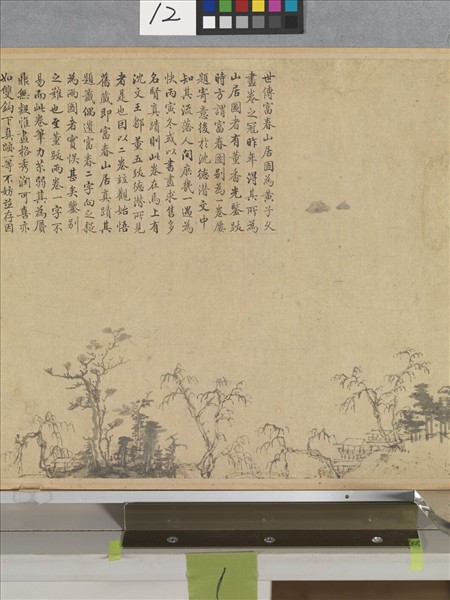 12
世傳富春山居圖為黃子久
畫卷之冠昨年得其所為
山居圖者有董香光鑒跋
時方謂富春圖別為一卷屢
題寄意後於沈德潛文中
知其流落人間庶幾一遇為
快丙寅冬或以書畫求售多
名賢真蹟則此卷在焉上有
沈文王鄒董五跋德潛所見
者是也因以二卷並觀始悟
舊藏即富春山居真蹟其
題籤偶遺富春二字向之疑
為兩圖者實悞甚矣鑒別
之難也至董跋兩卷一字不
易而此卷筆力荼弱其為贗
鼎無疑惟畫格秀潤可喜亦
如雙鉤下真蹟一等不妨並存因
1